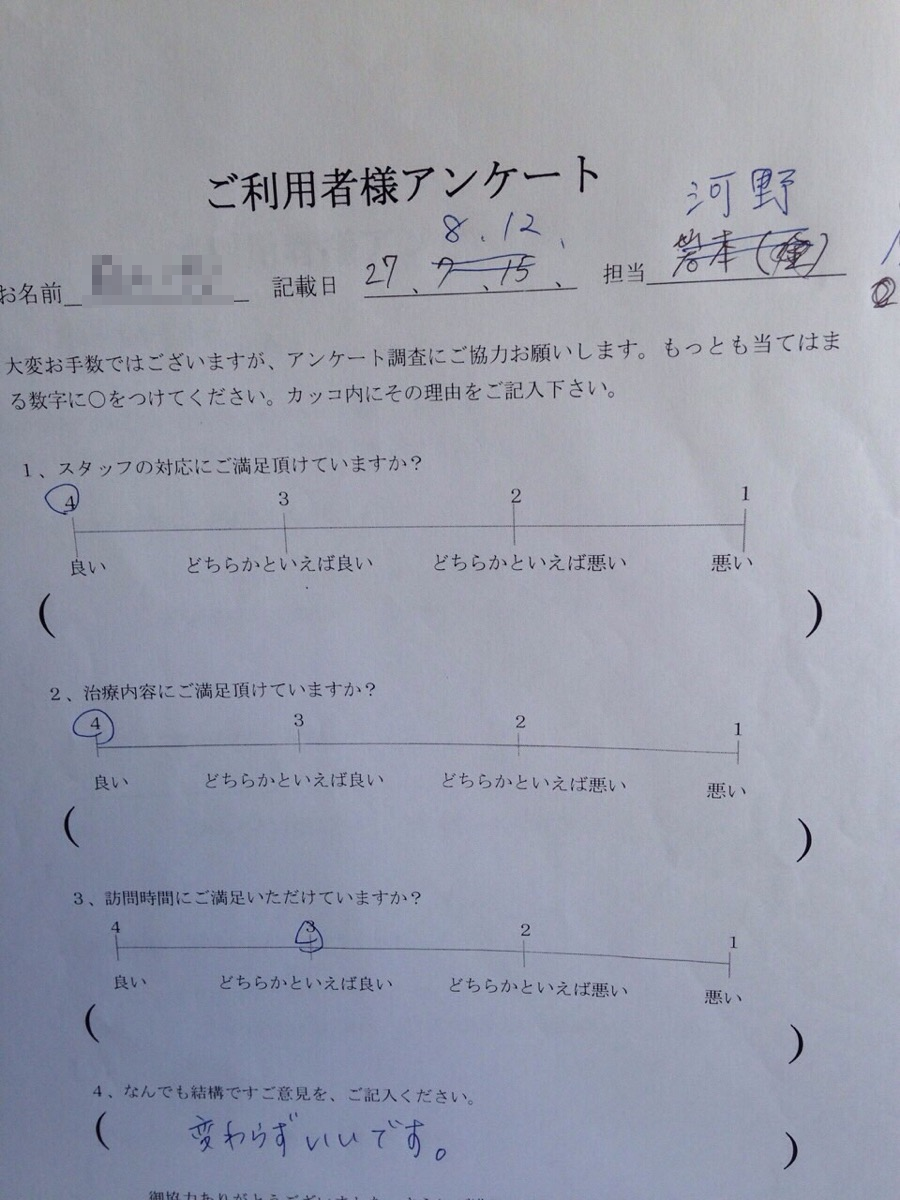 ご利用者様アンケート
河野
8.12、
お名前 記載日 27、7、15、 担当 岩本
大変お手数ではございますが、アンケート調査にご協力お願いします。もっとも当てはま
る数字に○をつけてください。カッコ内にその理由をご記入下さい。
1、スタッフの対応にご満足頂けていますか?
4 3 2 1
良い どちらかといえば良い どちらかといえば悪い 悪い
( )
2、治療内容にご満足頂けていますか?
4 3 2 1
良い どちらかといえば良い どちらかといえば悪い 悪い
( )
3、訪問時間にご満足いただけていますか?
4 3 2 1
良い どちらかといえば良い どちらかといえば悪い 悪い
( )
4、なんでも結構ですご意見を、ご記入ください。
( 変わらずいいです。 )
御協力ありがとうございました。